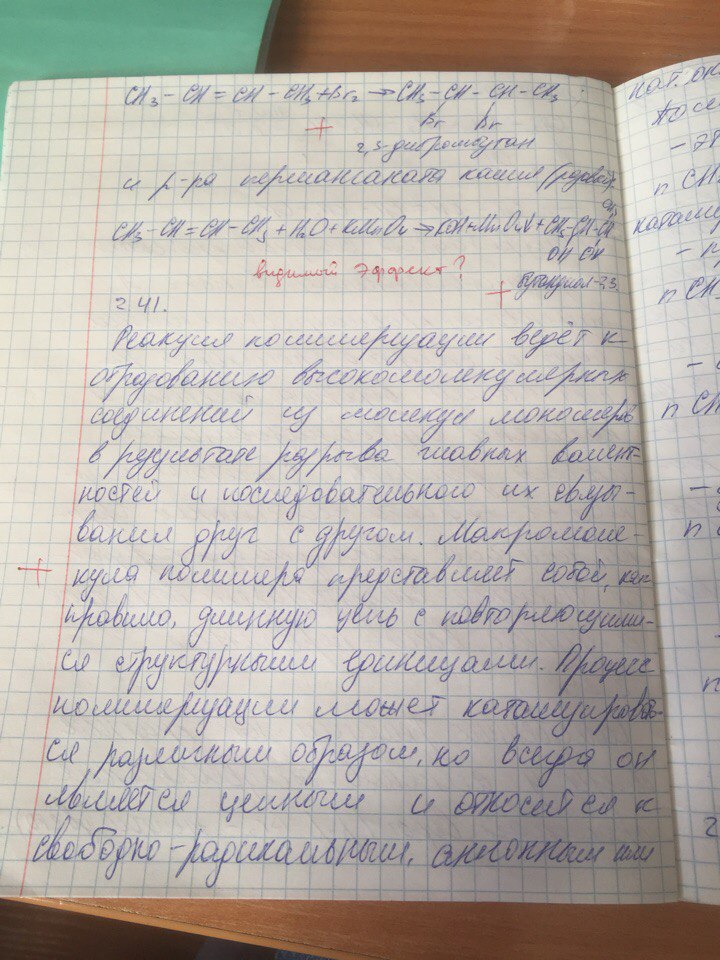 CH3 – CH = CH – CH3 + Br2 → CH3 – CH – CH – CH3
Br Br
2,3-дибромбутан
и р-ра перманганата калия (розовой).
CH3 – CH = CH – CH3 + H2O + KMnO4 → KOH + MnO2↓ + CH3 – CH – CH
CH3
OH OH
видимый эффект?
бутандиол-2,3.
2.41.
Реакция полимеризации ведёт к
образованию высокомолекулярных
соединений из молекул мономеров
в результате разрыва главных валент-
ностей и последовательного их связы-
вания друг с другом. Макромоле-
кула полимера представляет собой, как
правило, длинную цепь с повторяющими-
ся структурными единицами. Процесс
полимеризации может катализировать-
ся различным образом, но всегда он
является цепным и относится к
свободно-радикальным, анионным или
кат. ок
после
– эт
n CH
– п
n CH
n CH
n C
n
2